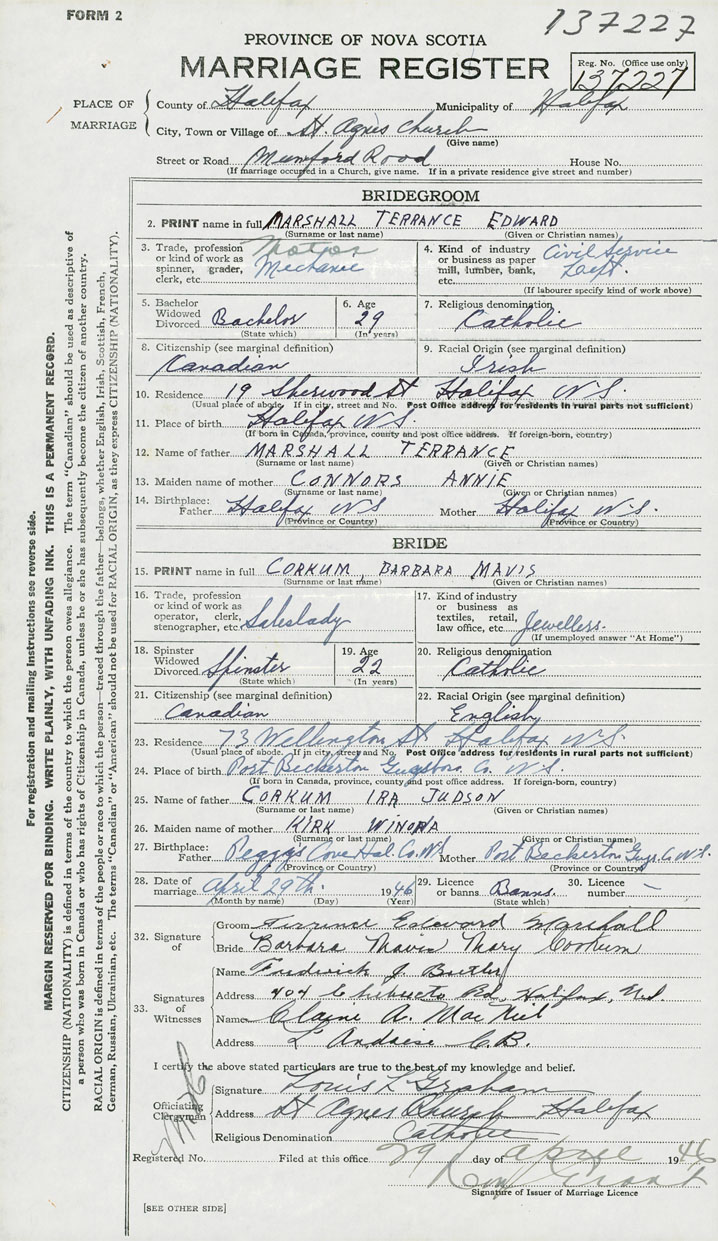 FORM 2
137227
PROVINCE OF NOVA SCOTIA
MARRIAGE REGISTER
Reg. No. (Office use only)
137227
PLACE OF MARRIAGE
County of Halifax Municipality of Halifax
City, Town or Village of St. Agnes Church
(Give name)
Street or Road Mumford Road House No.
(If marriage occurred in a Church, give name. If in a private residence give street and number)
BRIDEGROOM
2. PRINT name in full MARSHALL TERRANCE EDWARD
(Surname or last name) (Given or Christian names)
3. Trade, profession or kind of work as spinner, grader, clerk, etc. Motor Mechanic
4. Kind of industry or business as paper mill, lumber, bank, etc. Civil Service Dept.
(If labourer specify kind of work above)
5. Bachelor Widowed Divorced Bachelor
(State which)
6. Age 29
(In years)
7. Religious denomination Catholic
8. Citizenship (see marginal definition) Canadian
9. Racial Origin (see marginal definition) Irish
10. Residence 19 Sherwood St Halifax N.S.
(Usual place of abode. If in city, street and No. Post Office address for residents in rural parts not sufficient)
11. Place of birth Halifax N.S.
(If born in Canada, province, county and post office address. If foreign-born, country)
12. Name of father MARSHALL TERRANCE
(Surname or last name) (Given or Christian names)
13. Maiden name of mother CONNORS ANNIE
(Surname or last name) (Given or Christian names)
14. Birthplace: Father Halifax N S Mother Halifax N.S.
(Province or Country) (Province or Country)
BRIDE
15. PRINT name in full CORKUM, BARBARA MAVIS
(Surname or last name) (Given or Christian names)
16. Trade, profession or kind of work as operator, clerk, stenographer, etc. Saleslady
17. Kind of industry or business as textiles, retail, law office, etc. Jewellers.
(If unemployed answer "At Home")
18. Spinster Widowed Divorced Spinster
(State which)
19. Age 22
(In years)
20. Religious denomination Catholic
21. Citizenship (see marginal definition) Canadian
22. Racial Origin (see marginal definition) English
23. Residence 73 Wellington St. Halifax N.S.
(Usual place of abode. If in city, street and No. Post Office address for residents in rural parts not sufficient)
24. Place of birth Port Beckerton Guysboro. Co. N.S.
(If born in Canada, province, county and post office address. If foreign-born, country)
25. Name of father CORKUM IRA JUDSON
(Surname or last name) (Given or Christian names)
26. Maiden name of mother KIRK WINONA
(Surname or last name) (Given or Christian names)
27. Birthplace: Father Peggy's Cove Hal. Co. N.S. Mother Port Beckerton Guys. Co. N.S.
(Province or Country) (Province or Country)
28. Date of marriage April 29th. 1946
(Month by name) (Day) (Year)
29. Licence or banns Banns
(State which)
30. Licence number —
32. Signature of
Groom Terrence Edward Marshall
Bride Barbara Mavis Mary Corkum
33. Signatures of Witnesses
Name Fredrick J. Butler
Address 404 Chibucto Rd, Halifax, N.S.
Name Elaine A. MacNeil
Address L'Ardoise C.B.
I certify the above stated particulars are true to the best of my knowledge and belief.
Officiating Clergyman
Signature Louis L Graham
Address St Agnes Church Halifax
Religious Denomination Catholic
Registered No. Filed at this office 29 day of April 1946
Signature of Issuer of Marriage Licence
[SEE OTHER SIDE]
For registration and mailing instructions see reverse side.
MARGIN RESERVED FOR BINDING. WRITE PLAINLY, WITH UNFADING INK. THIS IS A PERMANENT RECORD.
CITIZENSHIP (NATIONALITY) is defined in terms of the country to which the person owes allegiance. The term "Canadian" should be used as descriptive of
a person who was born in Canada or who has rights of Citizenship in Canada, unless he or she has subsequently become the citizen of another country.
RACIAL ORIGIN is defined in terms of the people or race to which the person—traced through the father—belongs, whether English, Irish, Scottish, French,
German, Russian, Ukrainian, etc. The terms "Canadian" or "American" should not be used for RACIAL ORIGIN, as they express CITIZENSHIP (NATIONALITY).